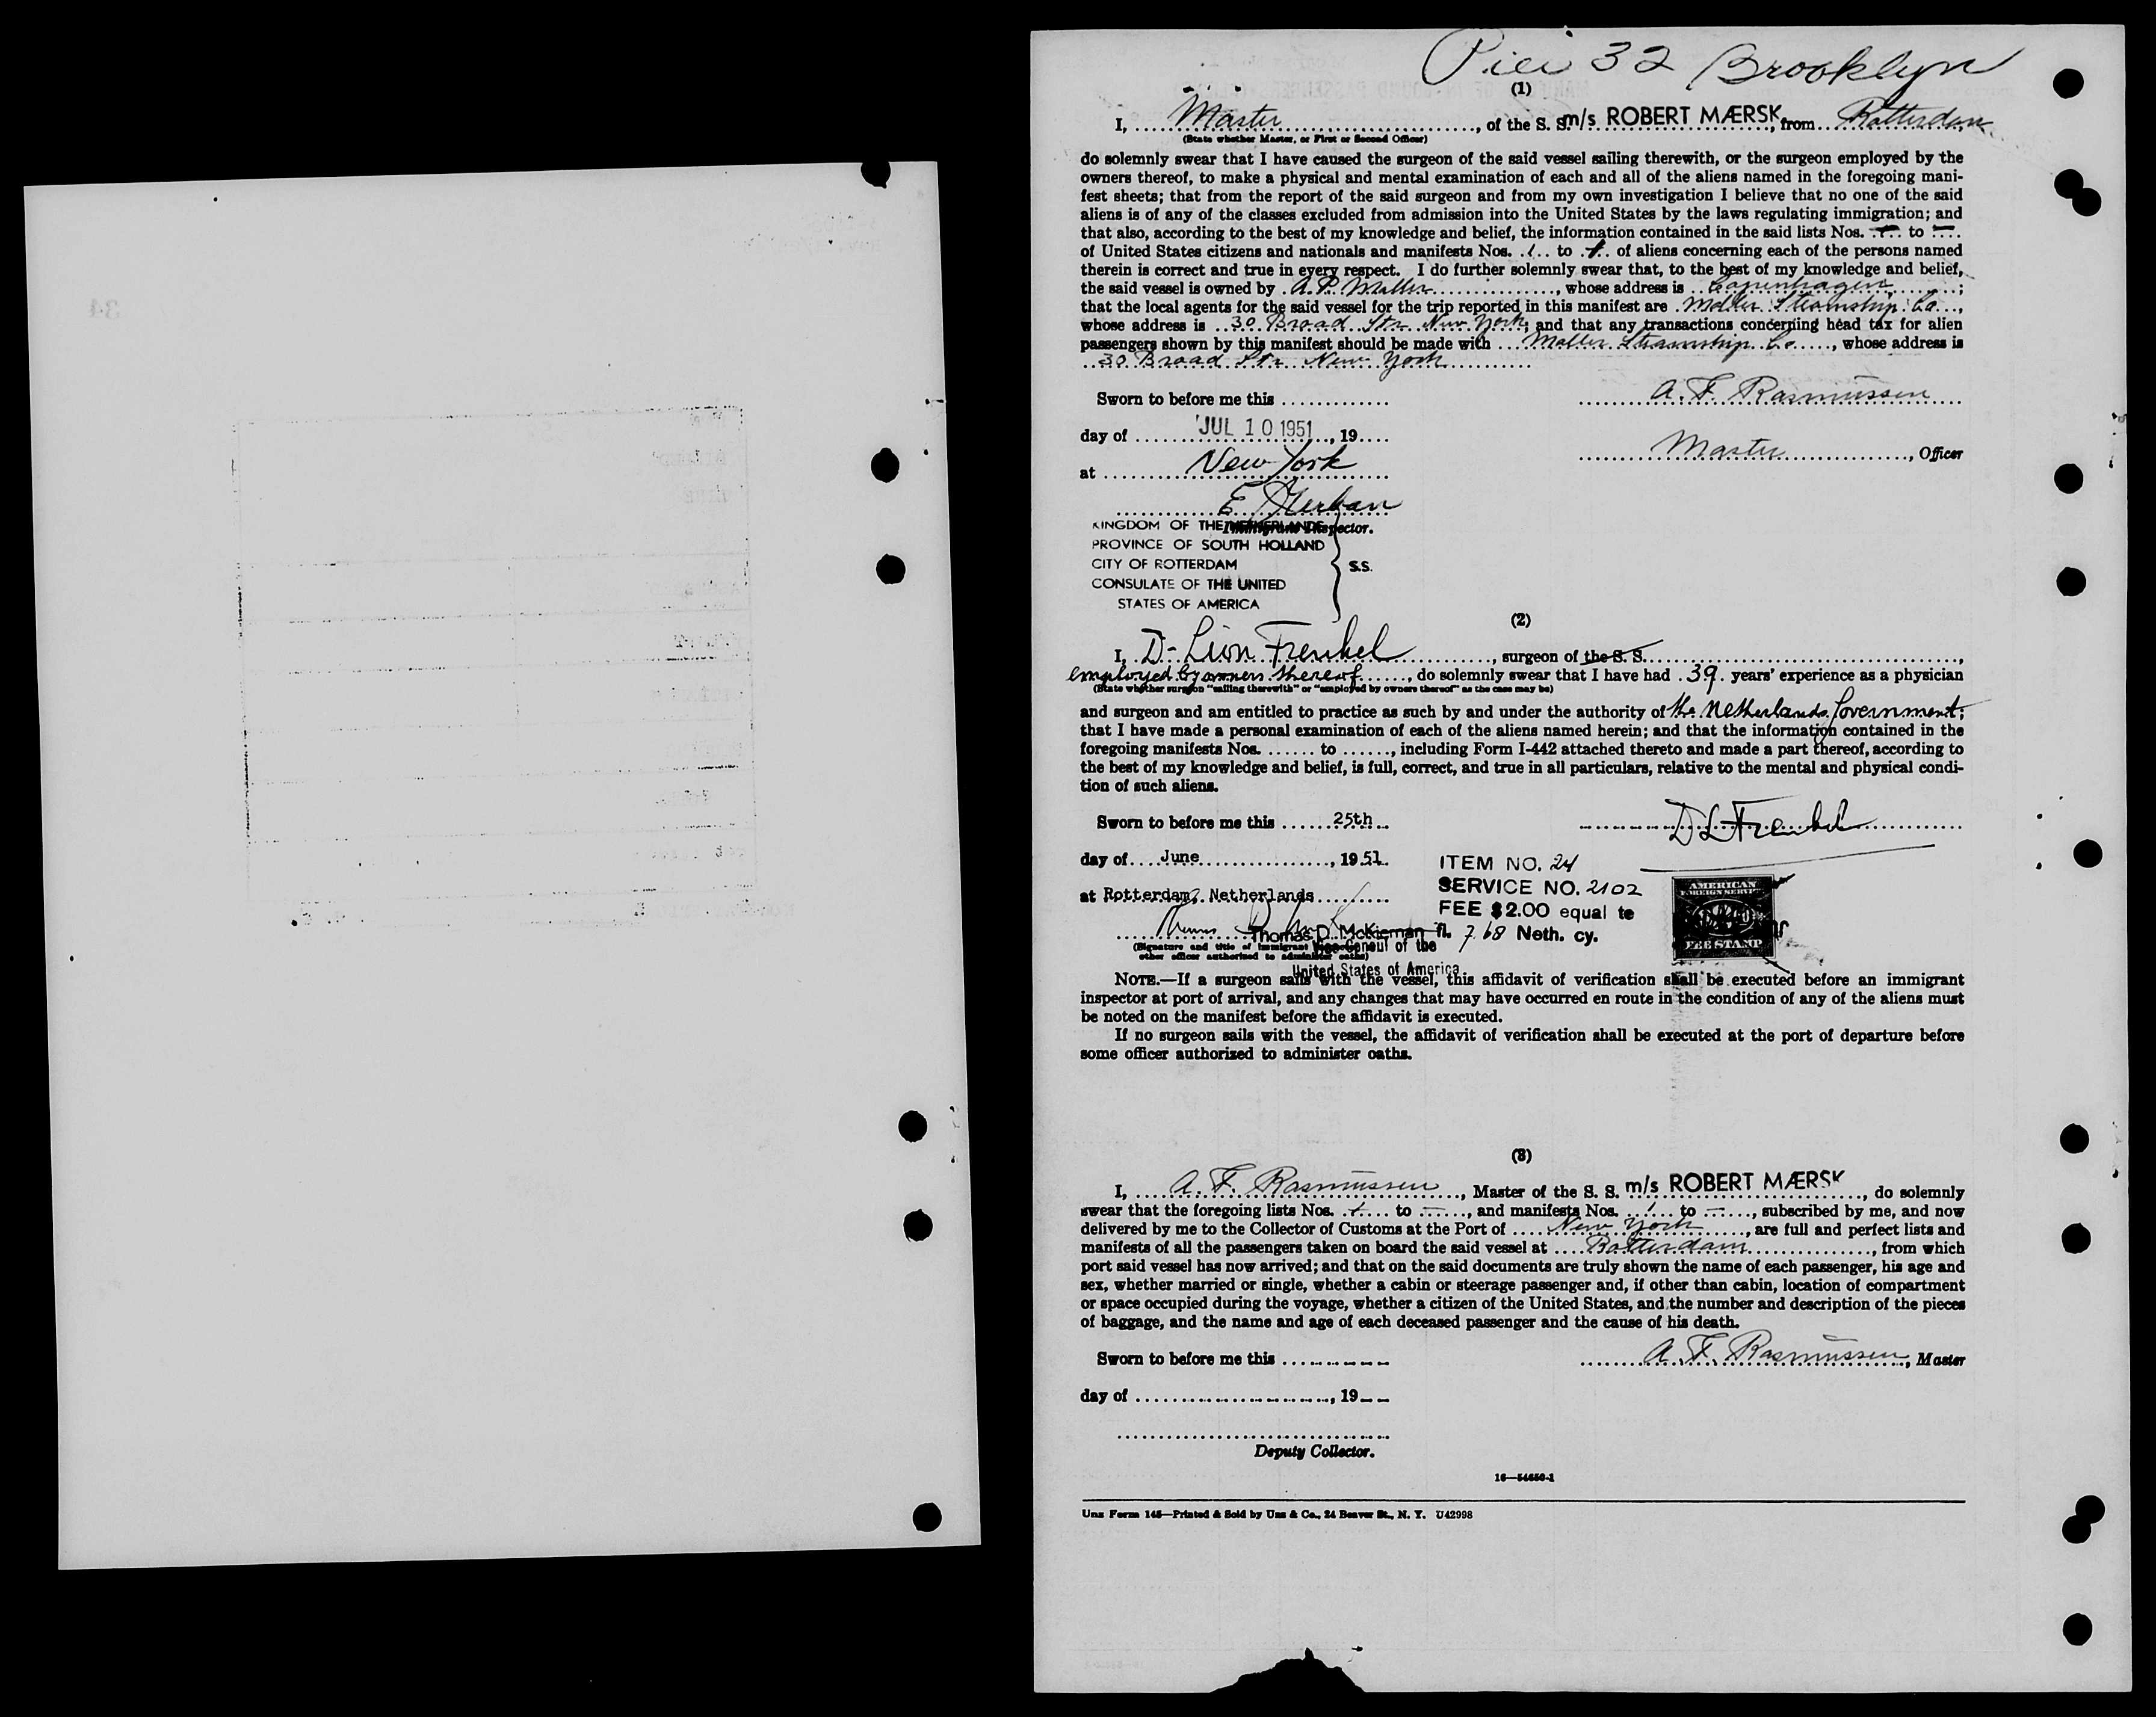 Pier 32 Brooklyn
(1)
I, Master, of the S. S. m/s ROBERT MÆRSK, from Rotterdam
(State whether Master, or First or Second Officer)
do solemnly swear that I have caused the surgeon of the said vessel sailing therewith, or the surgeon employed by the
owners thereof, to make a physical and mental examination of each and all of the aliens named in the foregoing mani-
fest sheets; that from the report of the said surgeon and from my own investigation I believe that no one of the said
aliens is of any of the classes excluded from admission into the United States by the laws regulating immigration; and
that also, according to the best of my knowledge and belief, the information contained in the said lists Nos. — to —
of United States citizens and nationals and manifests Nos. 1 to 1 of aliens concerning each of the persons named
therein is correct and true in every respect. I do further solemnly swear that, to the best of my knowledge and belief,
the said vessel is owned by A. P. Moller, whose address is Copenhagen;
that the local agents for the said vessel for the trip reported in this manifest are Moller Steamship Co.,
whose address is 30 Broad Str. New York; and that any transactions concerning head tax for alien
passengers shown by this manifest should be made with Moller Steamship Co., whose address is
30 Broad Str. New York
Sworn to before me this
A. F. Rasmussen
day of JUL 10 1951, 19
Master, Officer
at New York
E
Immigrant Inspector.
KINGDOM OF THE NETHERLANDS
PROVINCE OF SOUTH HOLLAND
CITY OF ROTTERDAM
CONSULATE OF THE UNITED
STATES OF AMERICA
S.S.
(2)
I, D. Lion Frenkel, surgeon of the S. S.
employed by owners thereof, do solemnly swear that I have had 39 years' experience as a physician
(State whether surgeon "sailing therewith" or "employed by owners thereof" as the case may be)
and surgeon and am entitled to practice as such by and under the authority of the Netherlands Government;
that I have made a personal examination of each of the aliens named herein; and that the information contained in the
foregoing manifests Nos. to , including Form I-442 attached thereto and made a part thereof, according to
the best of my knowledge and belief, is full, correct, and true in all particulars, relative to the mental and physical condi-
tion of such aliens.
Sworn to before me this 25th
D L Frenkel
day of June, 1951
at Rotterdam, Netherlands
ITEM NO. 24
SERVICE NO. 2102
FEE $2.00 equal to
fl. 7.68 Neth. cy.
AMERICAN
FOREIGN SERVICE
FEE STAMP
Thomas D. McKiernan
(Signature and title of immigrant
other officer authorized to administer oaths)
Vice Consul of the
United States of America
NOTE.—If a surgeon sails with the vessel, this affidavit of verification shall be executed before an immigrant
inspector at port of arrival, and any changes that may have occurred en route in the condition of any of the aliens must
be noted on the manifest before the affidavit is executed.
If no surgeon sails with the vessel, the affidavit of verification shall be executed at the port of departure before
some officer authorized to administer oaths.
(3)
I, A. F. Rasmussen, Master of the S. S. m/s ROBERT MÆRSK, do solemnly
swear that the foregoing lists Nos. 1 to —, and manifests Nos. 1 to —, subscribed by me, and now
delivered by me to the Collector of Customs at the Port of New York, are full and perfect lists and
manifests of all the passengers taken on board the said vessel at Rotterdam, from which
port said vessel has now arrived; and that on the said documents are truly shown the name of each passenger, his age and
sex, whether married or single, whether a cabin or steerage passenger and, if other than cabin, location of compartment
or space occupied during the voyage, whether a citizen of the United States, and the number and description of the pieces
of baggage, and the name and age of each deceased passenger and the cause of his death.
Sworn to before me this
A. F. Rasmussen, Master
day of , 19
Deputy Collector.
16—54650-1
Unz Form 145—Printed & Sold by Unz & Co., 24 Beaver St., N. Y. U42998